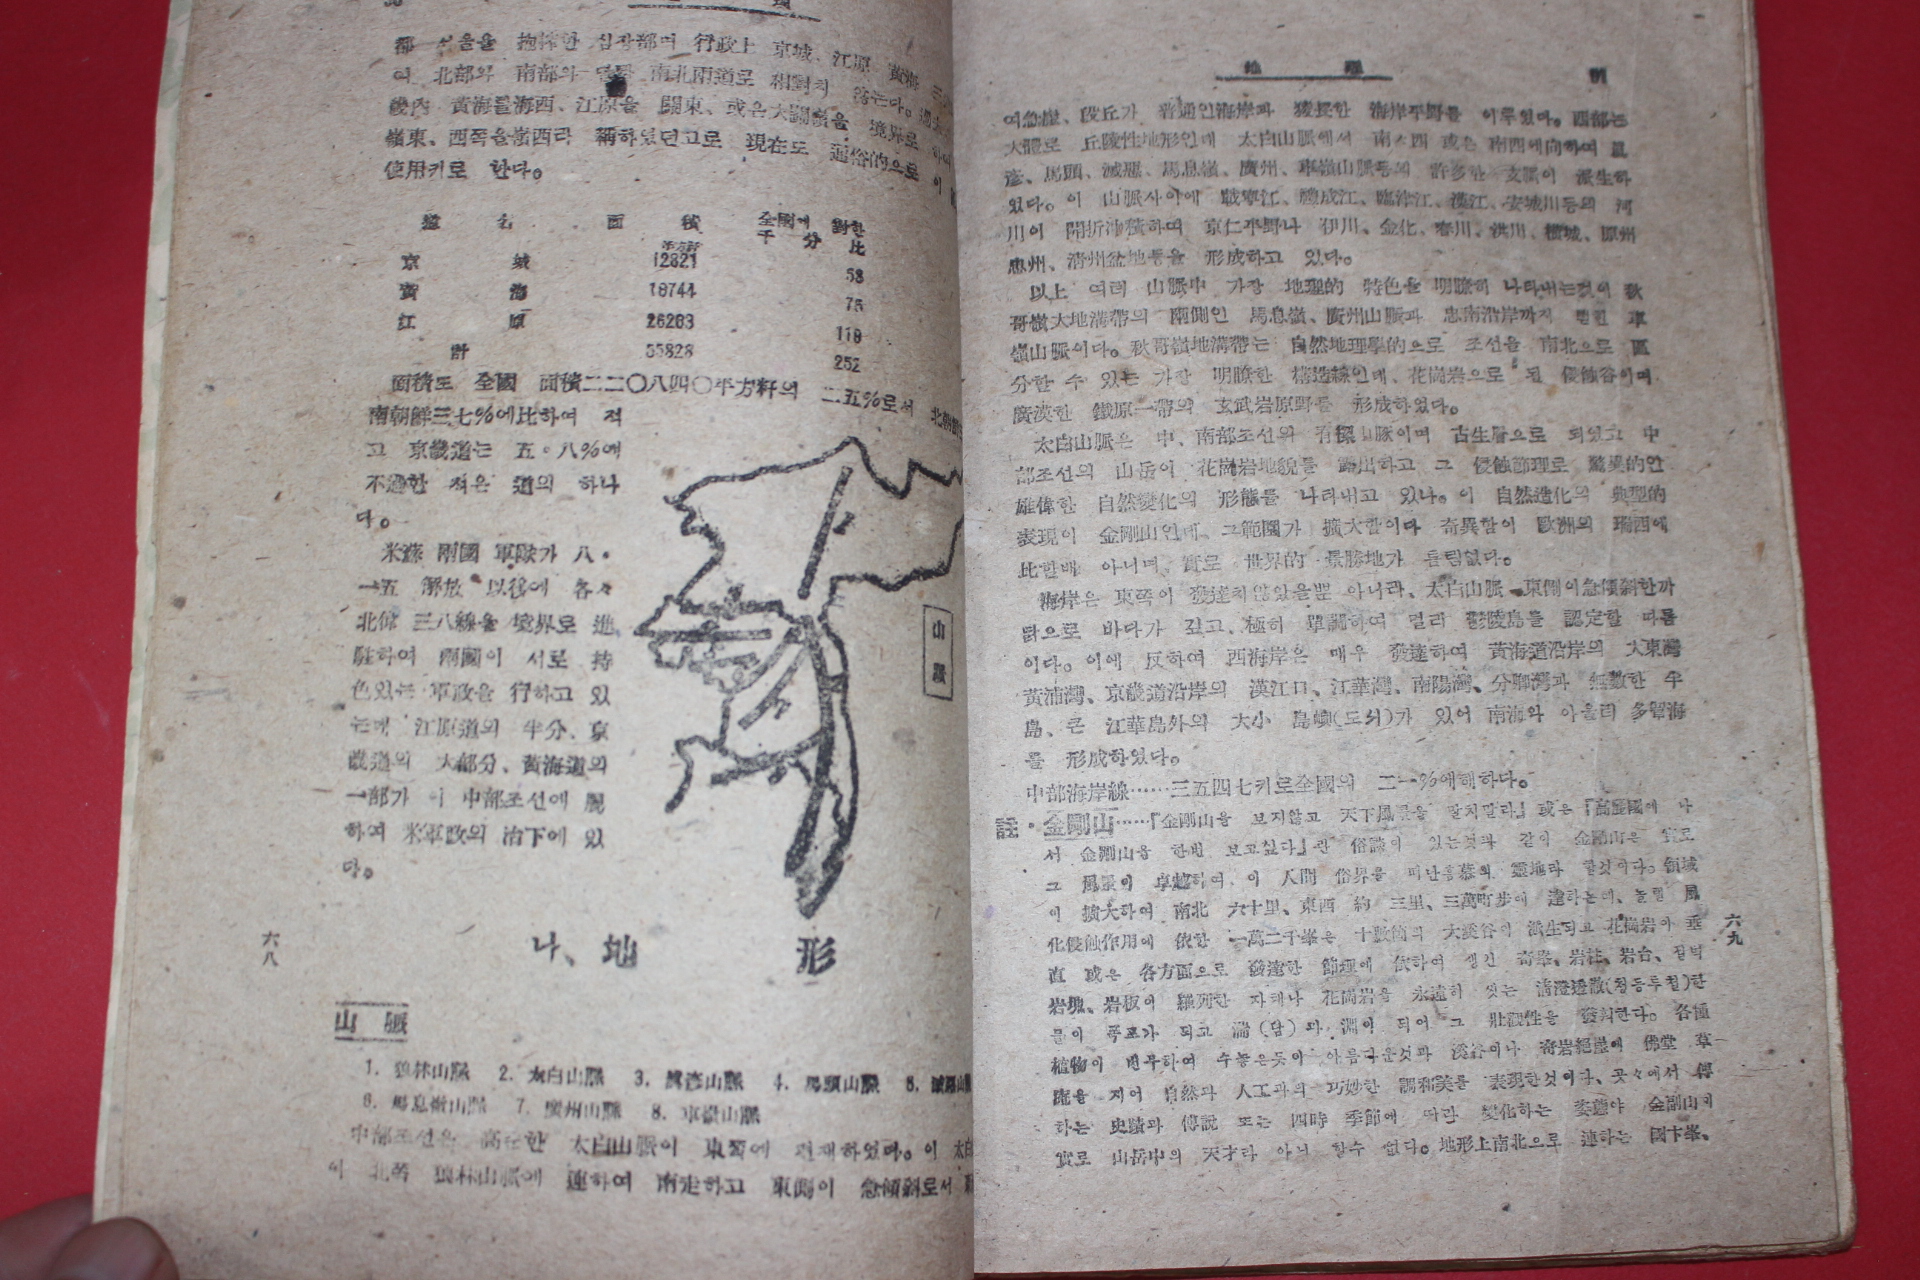 都 서울을 抱擁한 심장部며 行政上 京城、江原 黃海 三
여 北部와 南部와 南北兩道로 相對치 않는다。
畿內 黃海를海西、江原을 關東、或은大關嶺을 境界로 하여
嶺東、西쪽을嶺西라 稱하였던고로 現在도 通俗的으로 이
使用키로 한다。
道 名 面 積 全國에 對한
千 分 比
京 城 12821 58
黃 海 16744 75
江 原 26263 119
計 55828 252
面積도 全國 面積二二〇八四〇平方粁의 二五%로서 北朝鮮
南朝鮮三七%에比하여 적
고 京畿道는 五·八%에
不過한 적은 道의 하나
다。
米蘇 兩國 軍隊가 八·
一五 解放 以後에 各々
北偉 三八線을 境界로 進
駐하여 兩國이 서로 特
色있는 軍政을 行하고 있
는데 江原道의 半分、京
畿道의 大部分、黃海道의
一部가 이 中部조선에 屬
하여 米軍政의 治下에 있
다。
山脈
六八
나、地 形
山 脈
1. 狼林山脈 2. 太白山脈 3. 彦山脈 4. 馬頭山脈 5. 滅惡山脈
6. 馬息嶺山脈 7. 廣州山脈 8. 車嶺山脈
中部조선은 高峻한 太白山脈이 東쪽에 偏在하였다。이 太白
이 北쪽 狼林山脈에 連하여 南走하고 東側이 急傾斜로서
地 理
여急崖、段丘가 普通인海岸과 狹長한 海岸平野를 이루었다。西部는
大體로 丘陵性地形인데 太白山脈에서 南々西 或은 南西에向하여
彦、馬頭、滅惡、馬息嶺、廣州、車嶺山脈등의 許多한 支脈이 派生하
었다。이 山脈사이에 載寧江、禮成江、臨津江、漢江、安城川등의 河
川이 開折沖積하여 京仁平野나 伊川、金化、春川、洪川、橫城、原州
忠州、淸州盆地등을 形成하고 있다。
以上 여러 山脈中 가장 地理的 特色을 明瞭히 나타내는것이 秋
哥嶺大地溝帶의 兩側인 馬息嶺、廣州山脈과 忠南沿岸까지 車
嶺山脈이다。秋哥嶺地溝帶는 自然地理學的으로 조선을 南北으로 區
分할 수 있는 가장 明瞭한 構造線인데、花崗岩으로 된 侵蝕谷이며
廣漠한 鐵原一帶의 玄武岩原野를 形成하였다。
太白山脈은 中、南部조선의 脊樑山脈이며 古生層으로 되었고 中
部조선의 山岳이 花崗岩地貌를 露出하고 그 侵蝕節理로 驚異的인
雄偉한 自然變化의 形態를 나타내고 있다。이 自然造化의 典型的
表現이 金剛山인데、그範圍가 擴大함이다 奇異함이 歐洲의 瑞西에
比할배 아니며、實로 世界的 景勝地가 틀림없다。
海岸은 東쪽이 發達치않았을뿐 아니라、太白山脈 東側이急傾斜한까
닭으로 바다가 깊고、極히 單調하여 멀리 鬱陵島를 認定할 따름
이다。이에 反하여 西海岸은 매우 發達하여 黃海道沿岸의 大東灣
黃浦灣、京畿道沿岸의 漢江口、江華灣、南陽灣、分鄕灣과 無數한 半
島、큰 江華島外의 大小 島嶼(도서)가 있어 南海와 아울러 多島海
를 形成하였다。
中部海岸線……三五四七키로全國의 二一%에해하다。
註·金剛山……『金剛山을 보지않고 天下風景을 말치말라』或은『高麗國에 나
서 金剛山을 한번 보고싶다』란 俗談이 있는것과 같이 金剛山은 實로
그 風景이 卓越하여、이 人間 俗界를 떠난 靈地라 할것이다。領域
이 擴大하여 南北 六十里、東西 約 三里、三萬町步에 達하는데、놀랠 風
化侵蝕作用에 依한 一萬二千峯은 十數箇의 大溪谷이 派生되고 花崗岩이 垂
直 或은 各方面으로 發達한 節理에 依하여 생긴 奇峯、岩柱、岩台、절벽
岩塊、岩板이 羅列한 자태나 花崗岩을 永遠히 씻는 淸澄透徹(청등투철)한
물이 폭포가 되고 (담)과 淵이 되어 그 壯觀性을 發揮한다。各種
植物이 번무하여 수놓은듯이 아름다운것과 溪谷이나 奇岩絕壁에 佛堂 草
庵을 지어 自然과 人工과의 巧妙한 調和美를 表現한것이다、곳々에서 傳
하는 史蹟과 傳說 또는 四時 季節에 따라 變化하는 姿態야 金剛山이
實로 山岳中의 天才라 아니 할수 없다。地形上南北으로 連하는 國下峯、
六九